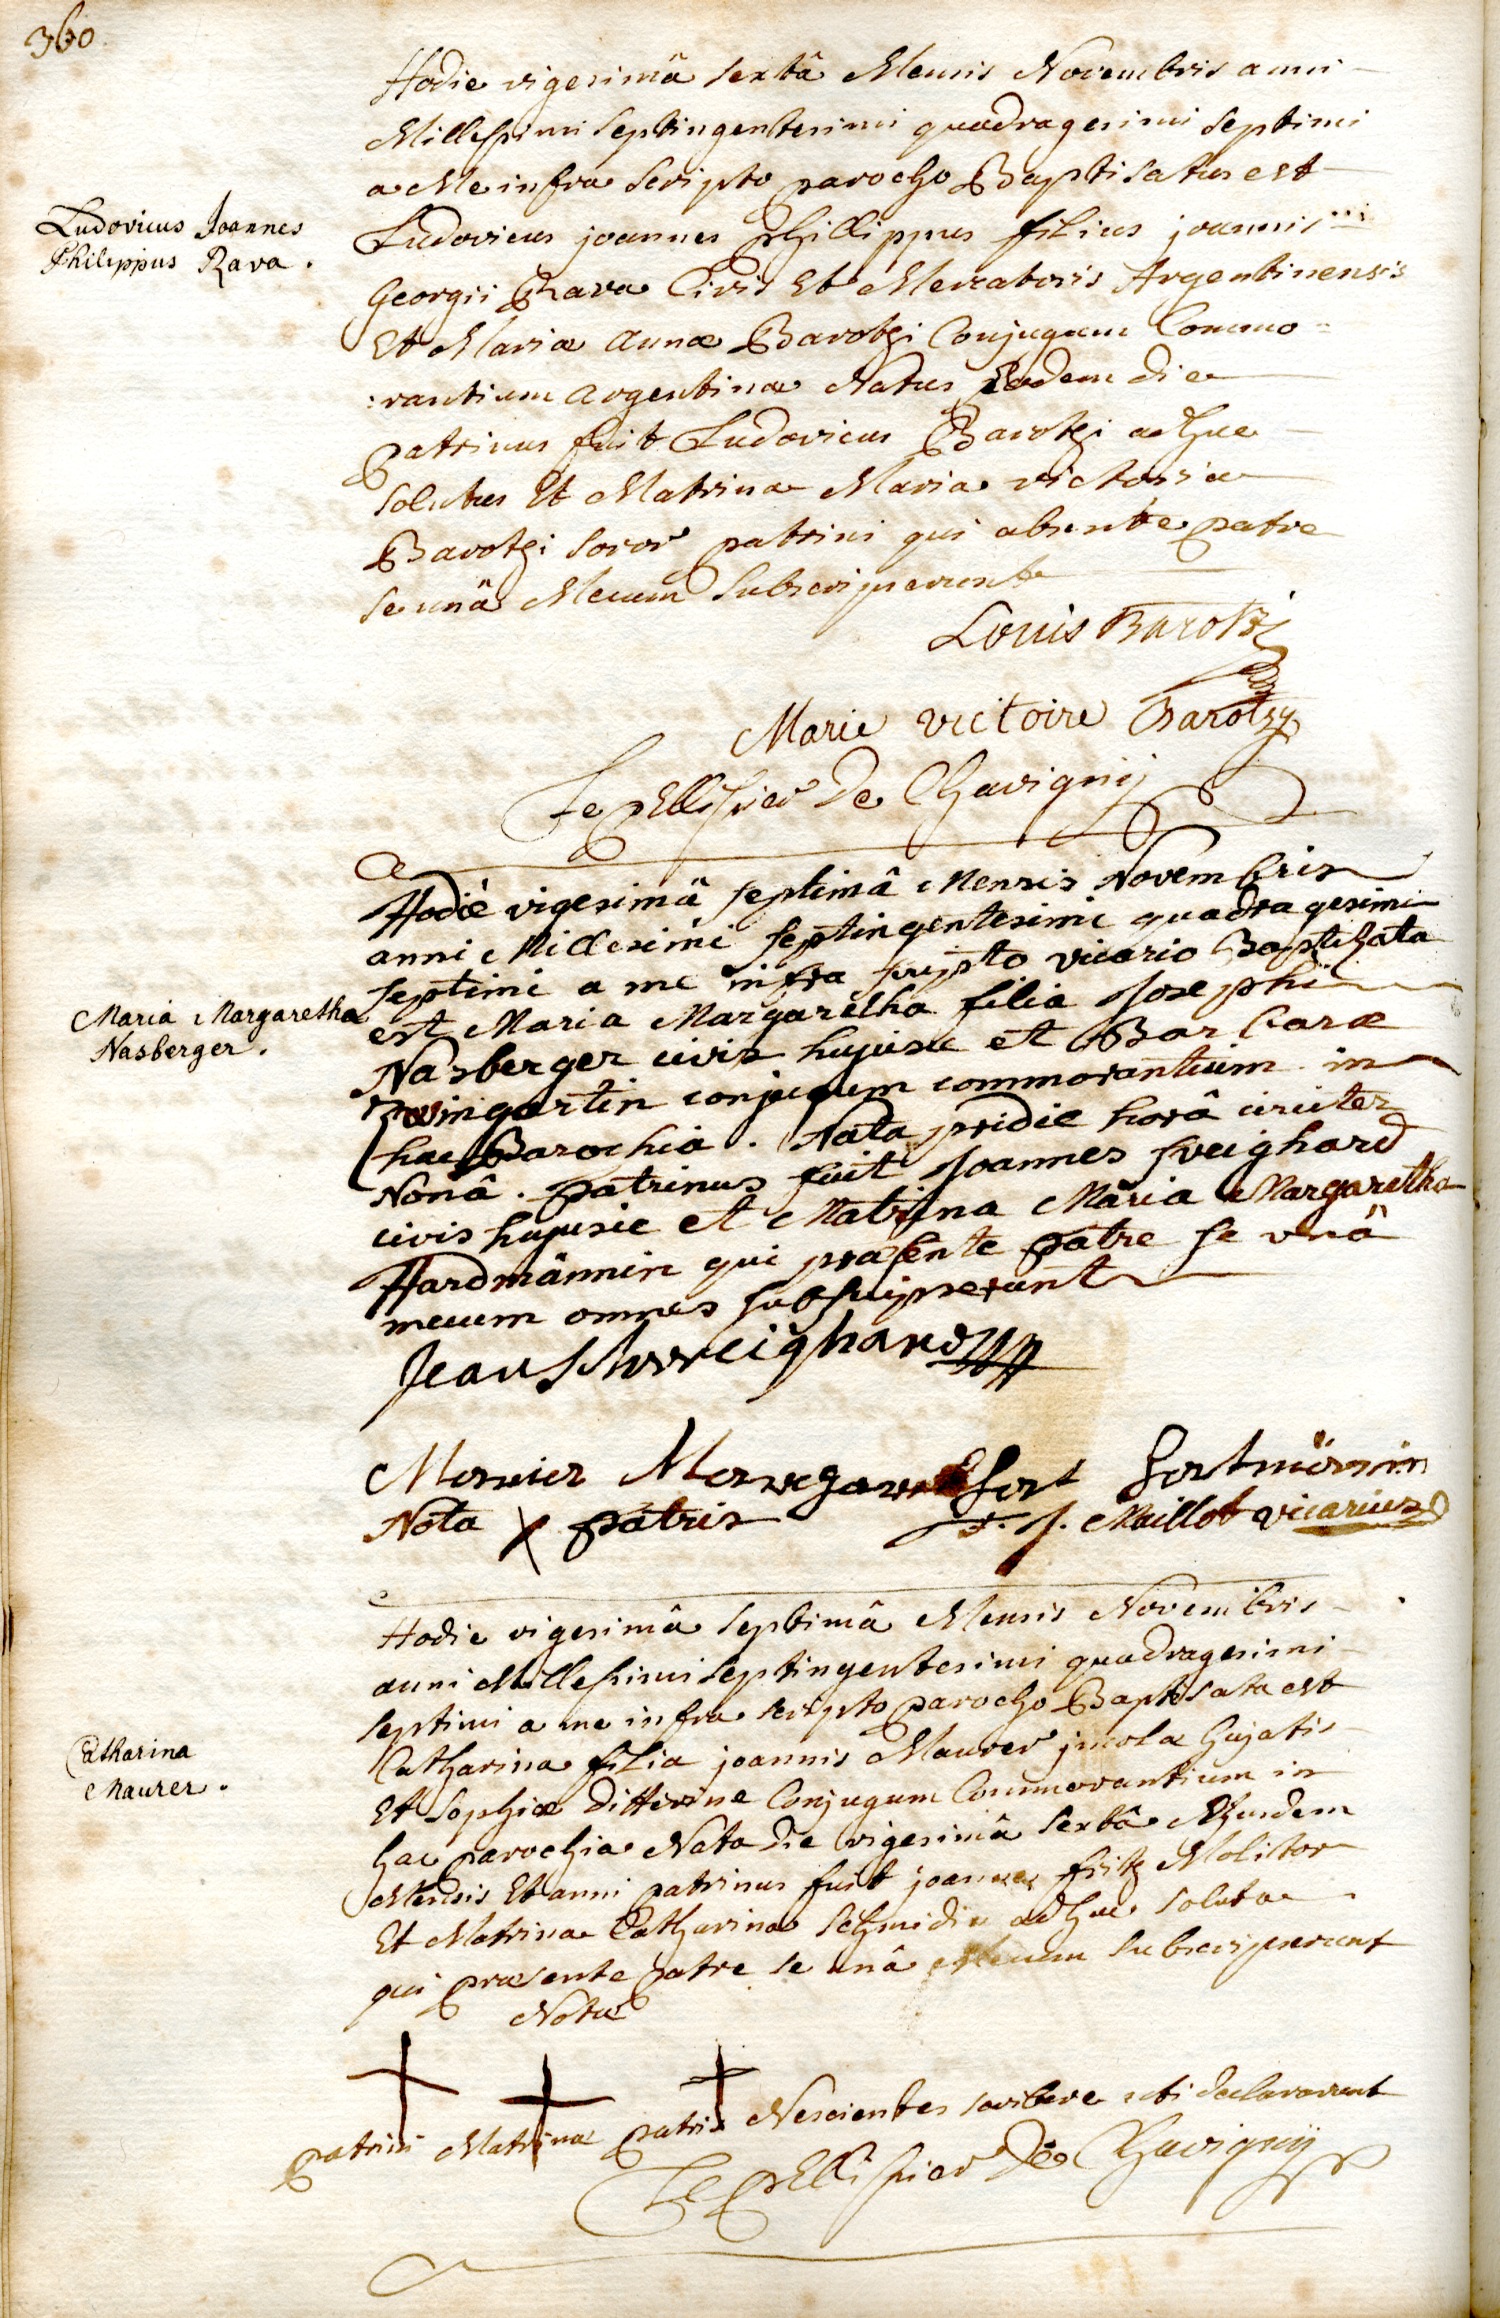 360
Hodie vigesimâ sextâ Mensis Novembris anni
Millesimi septingentesimi quadragesimi septimi
a Me infra scripto parocho Baptisatus est
Ludovicus Joannes
Philippus Rava.
Ludovicus joannes phillippus filius joannis
Georgii Rava Civis Et Mercatoris Argentinensis
Et Mariæ annæ Barotzi Conjugum Commo=
:rantium argentinæ Natus Eadem die
patrinus fuit Ludovicus Barotzi adhuc
solutus Et Matrina Maria victoria
Barotzi soror patrini qui absente patre
se unâ Mecum subscripserunt
Louis Barotzi
Marie victoire Barotzy
Le pellissier De Chavignij
Hodiè vigesimâ septimâ Mensis Novembris
anni Millesimi septingentesimi quadragesimi
septimi a me infra scripto vicario Baptizata
Maria Margaretha
Nasberger.
est Maria Margaretha filia Josephi
Nasberger civis hujusce et Barbaræ
conjugum commorantium in
hac Parochia. Nata pridie horâ circiter
Nonâ. patrinus fuit Joannes sveighard
civis hujusce et Matrina Maria Margaretha
Hardmännin qui præsente patre se unâ
mecum omnes subscripserunt
Jean Schweighard
hortmönin
Nota X patris F. J. Maillot vicarius
Hodie vigesimâ septimâ Mensis Novembris
anni Millesimi septingentesimi quadragesimi
septimi a me infra scripto parocho Baptisata est
Catharina
Maurer.
Catharina filia joannis Maurer jncola hujatis
Et sophiæ Ditterine Conjugum Commorantium in
hac parochia Nata die vigesimâ sextâ Ejusdem
Mensis Et anni patrinus fuit joannes fritz Molitor
Et Matrina Catharina schmidin adhuc soluta
qui præsente patre se unâ Mecum subscripserunt
Notæ
patrini Matrinæ patris Nescientes scribere uti declararunt
Le pellissier De Chavignij